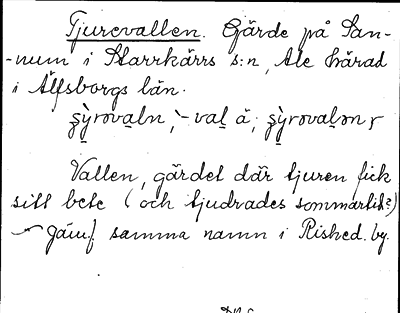 Tjurevallen. Gärde på San-
-num i Starrkärrs s:n, Ale härad
i Älfsborgs län.
s̡ỳrova̱ln, -val ä,; s̡ỳrovalən,
Vallen, gärdet där tjuren fick
sitt bete (och tjudrades sommartid?)
Jämf samma namn i Risked. by.